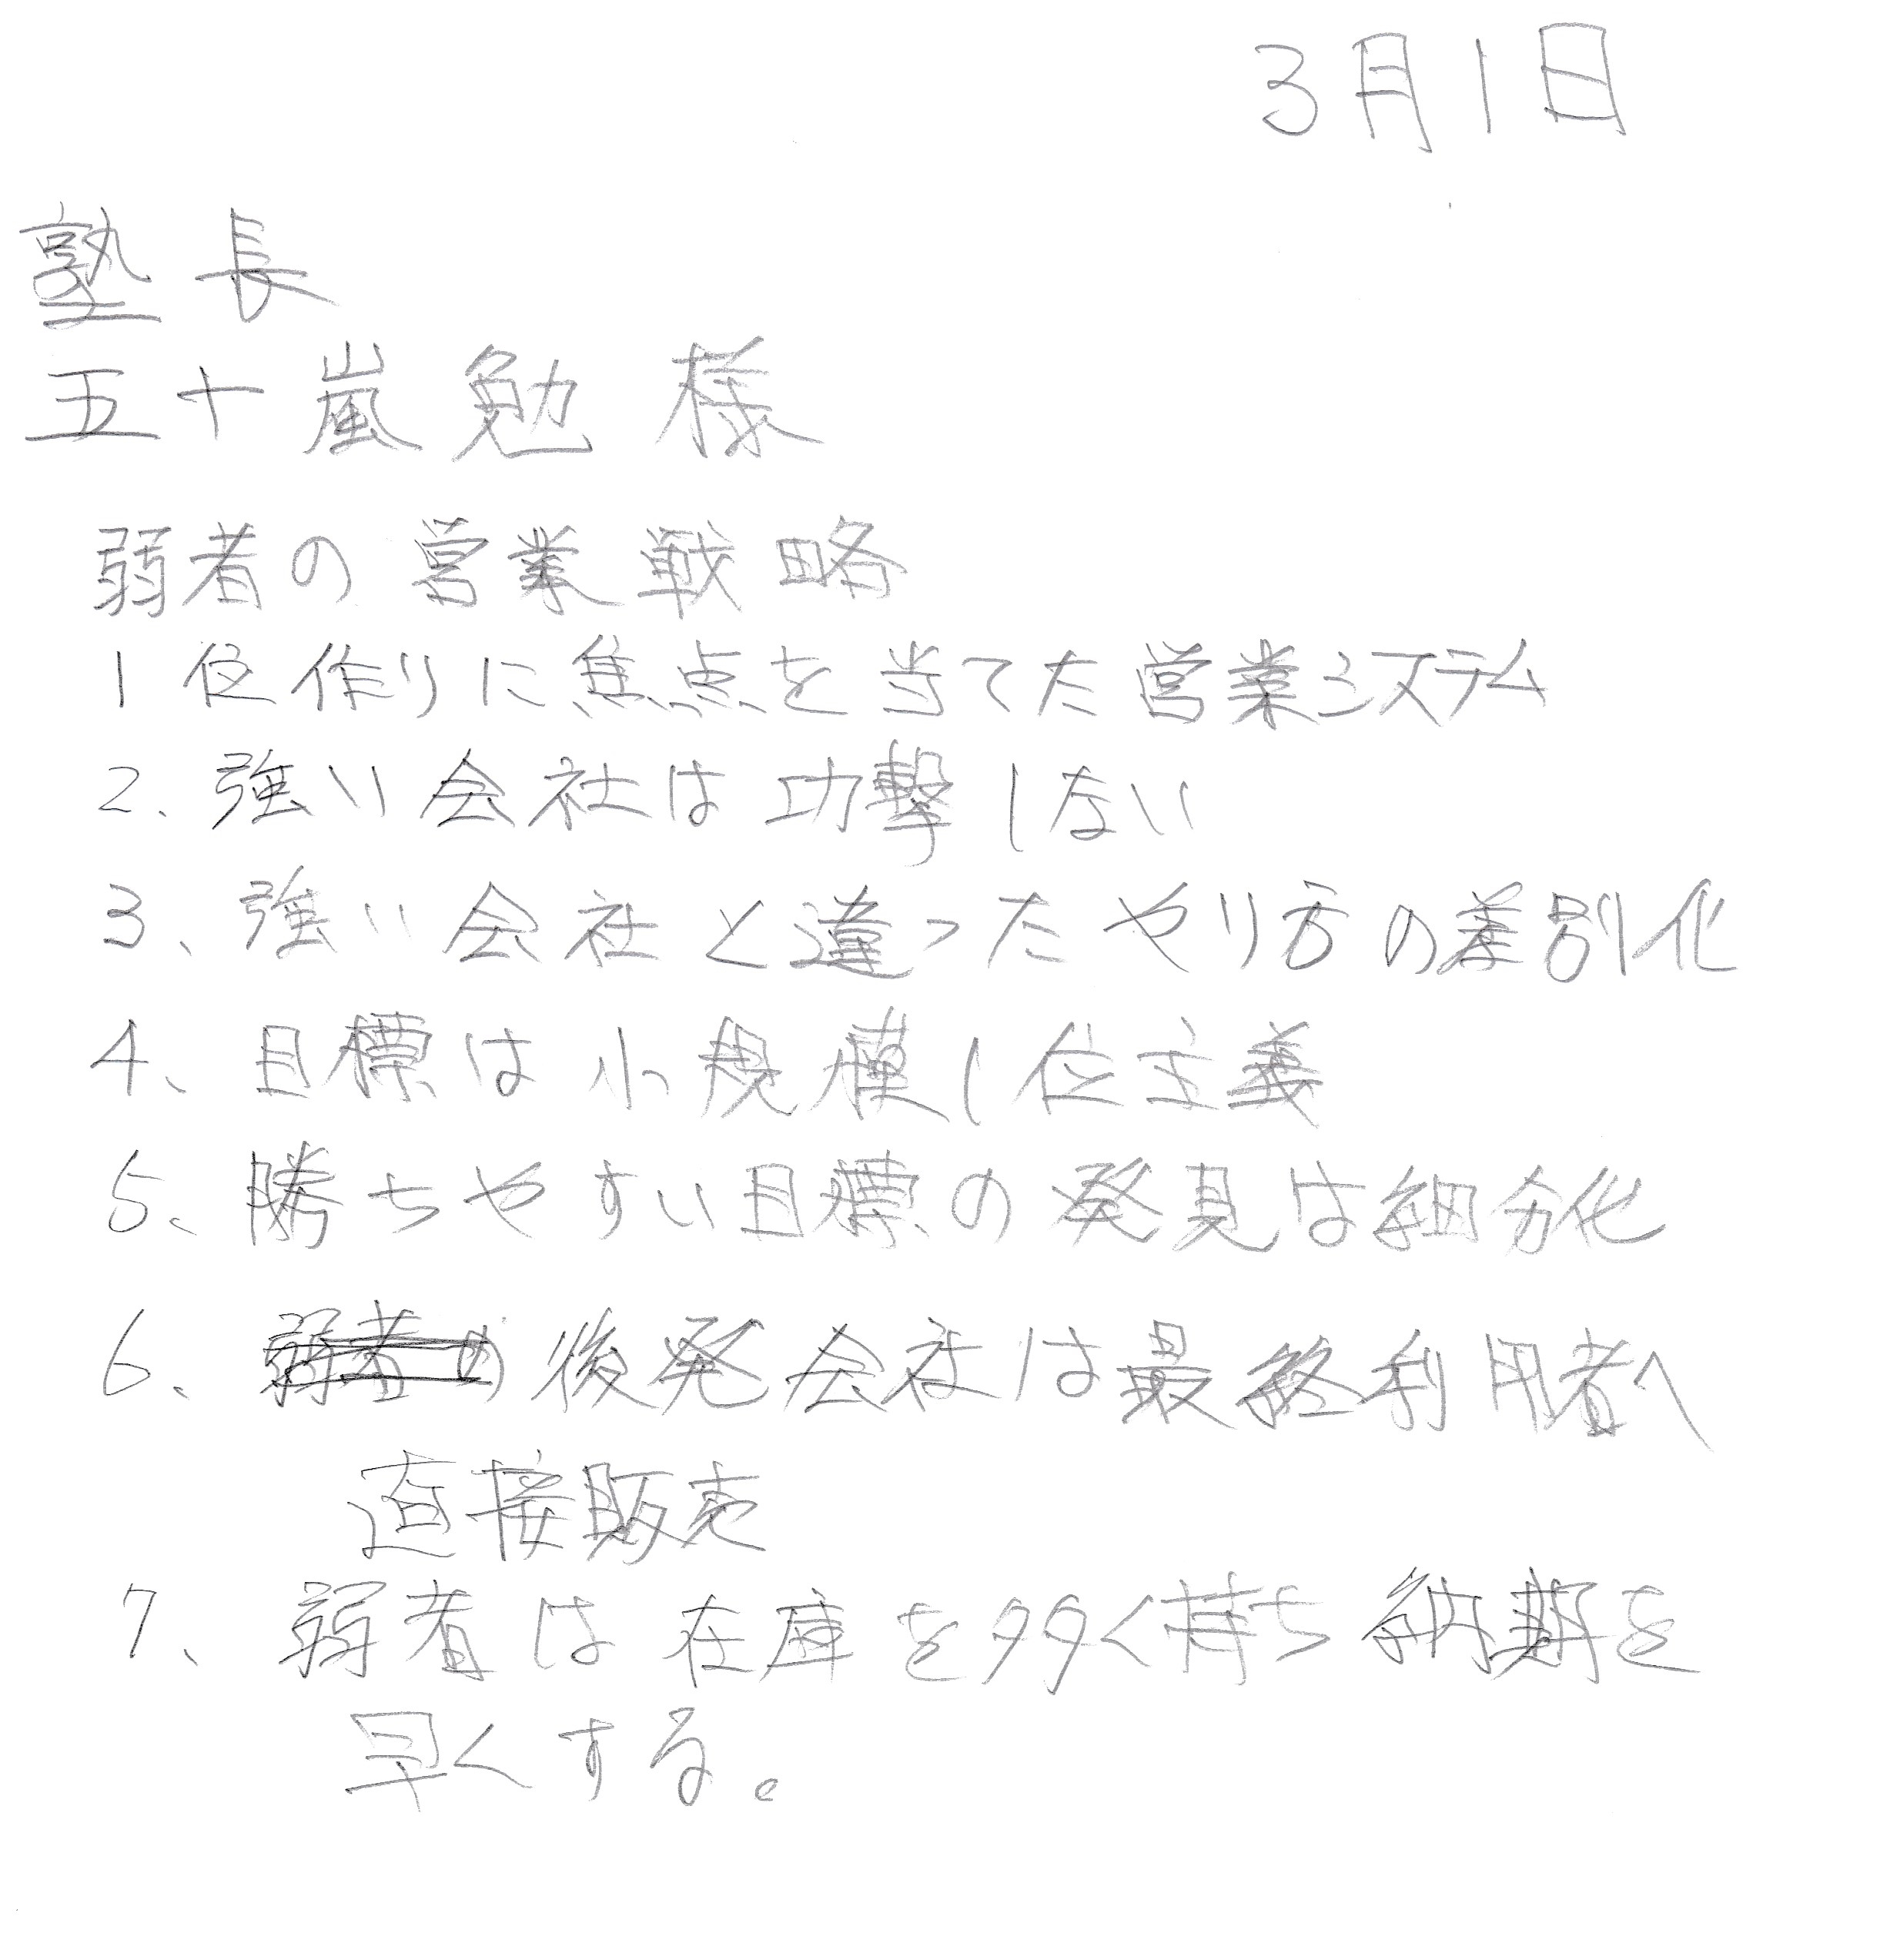 3月1日
塾長
五十嵐勉様
弱者の営業戦略
1位作りに焦点を当てた営業システム
2、強い会社は功撃しない
3、強い会社と違ったやり方の差別化
4、目標は小規模1位主義
5、勝ちやすい目標の発見は細分化
6、弱者の後発会社は最終利用者へ
直接販売
7、弱者は在庫を多く持ち納期を
早くする。